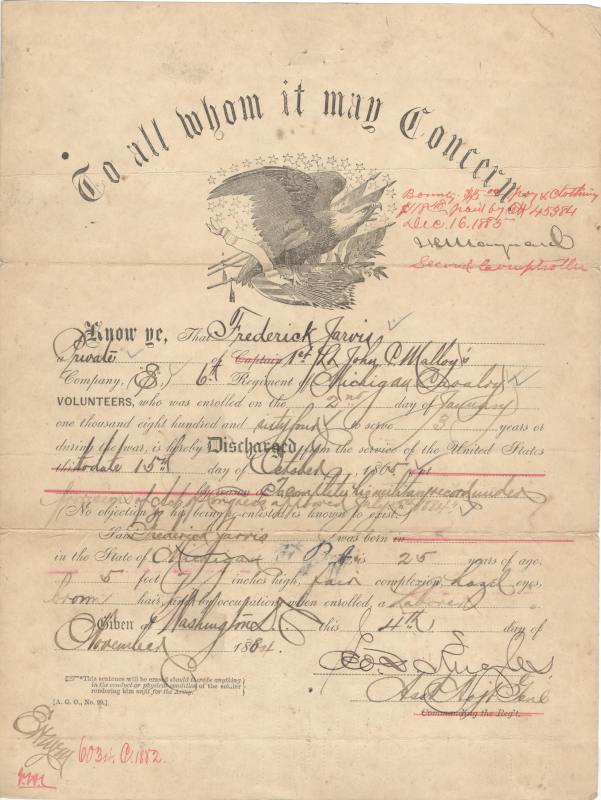 To all whom it may Concern
Bounty pay & Clothing
paid by 45984
Dec. 16. 1885
Maynard
Second Comptroller
Know ye, That Frederick Jarvis
a Private of Captain 1st Lt. John C Malloy's
Company, (E,) 6th Regiment of Michigan Cavalry
VOLUNTEERS, who was enrolled on the 2nd day of January
one thousand eight hundred and sixty four to serve 3 years or
during the war, is hereby Discharged from the service of the United States
this to date 15th day of October, 1865,
by reason of To complete his military record under
provisions of act of Congress approved 1884.
(No objection to his being re-enlisted is known to exist.*)
Said Frederick Jarvis was born in
in the State of Michigan is 25 years of age,
5 feet 7 inches high, fair complexion, hazel eyes,
brown hair, and by occupation, when enrolled, a Laborer
Given at Washington D.C. this 4th day of
November 1884.
*This sentence will be erased should there be anything
in the conduct or physical condition of the soldier
rendering him unfit for the Army.
[A. G. O., No. 99.]
Asst Adjt Genl
Commanding the Reg't.
603 C. 1882.